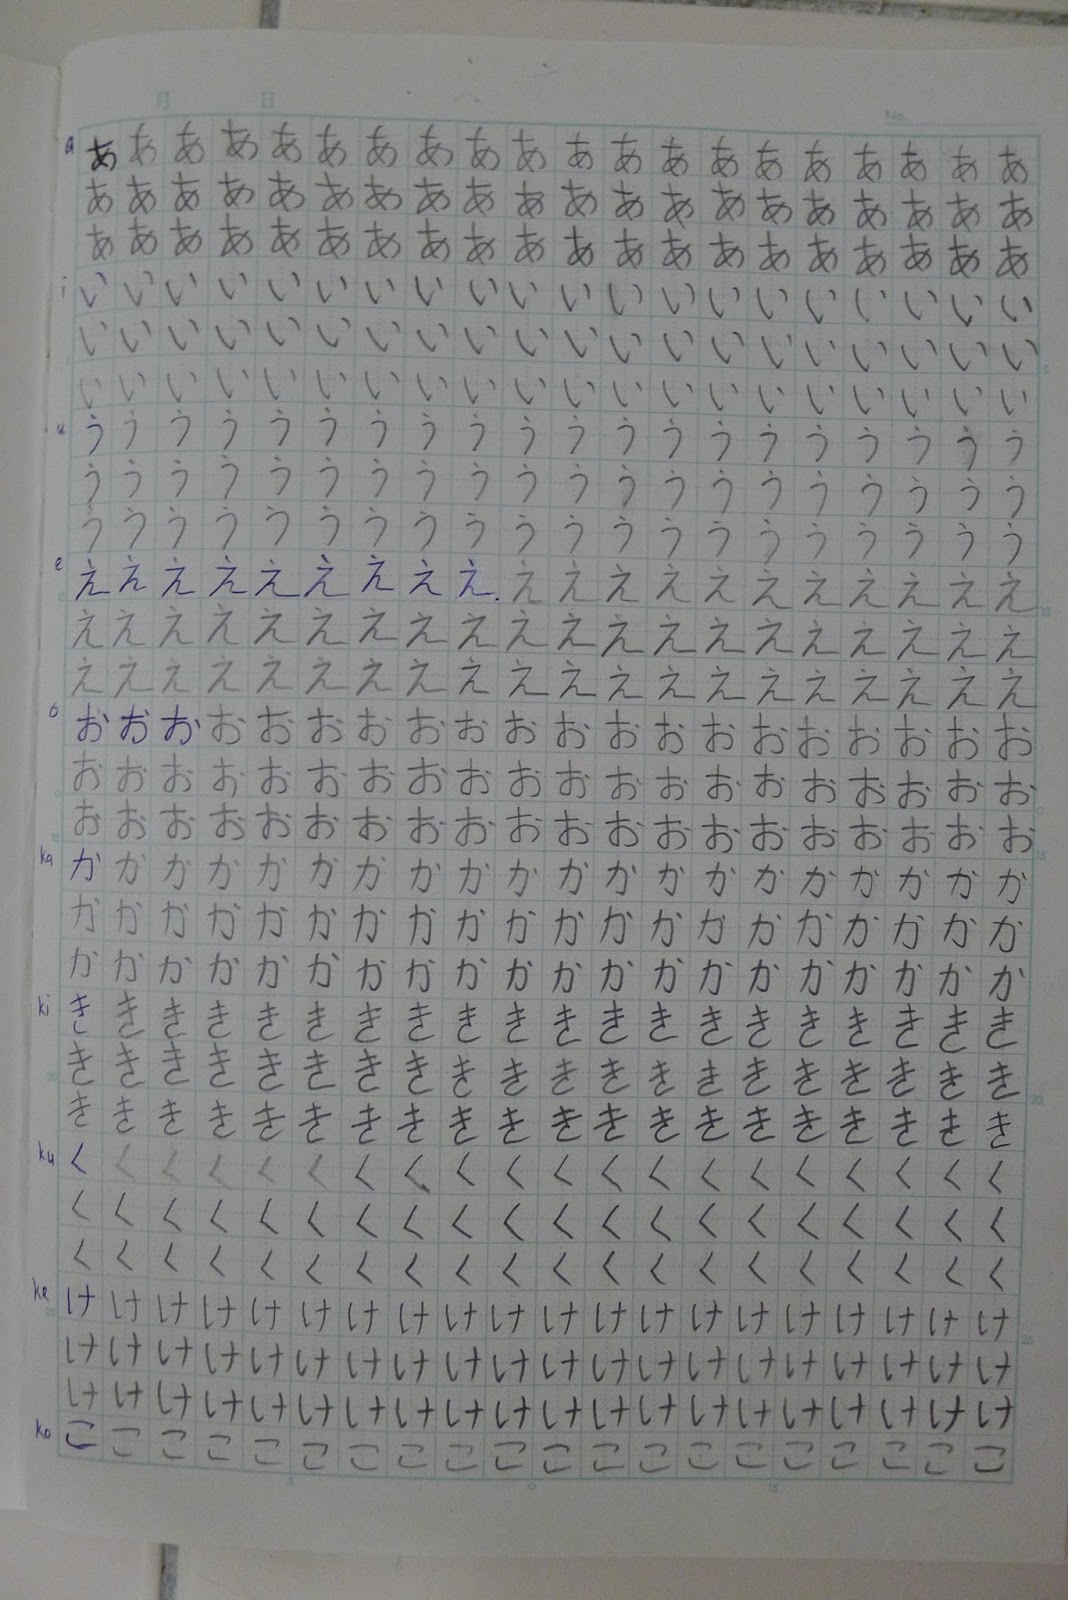 月 日 No.
a ああああああああああああああああああああ
ああああああああああああああああああああ
ああああああああああああああああああああ
i いいいいいいいいいいいいいいいいいいいい
いいいいいいいいいいいいいいいいいいいい 5
いいいいいいいいいいいいいいいいいいいい
u うううううううううううううううううううう
うううううううううううううううううううう
うううううううううううううううううううう
e えええええええええ.えええええええええええ 10
ええええええええええええええええええええ
ええええええええええええええええええええ
o おおおおおおおおおおおおおおおおおおおお
おおおおおおおおおおおおおおおおおおおお
15 おおおおおおおおおおおおおおおおおおおお 15
ka かかかかかかかかかかかかかかかかかかかか
かかかかかかかかかかかかかかかかかかかか
かかかかかかかかかかかかかかかかかかかか
ki きききききききききききききききききききき
20 きききききききききききききききききききき 20
きききききききききききききききききききき
ku くくくくくくくくくくくくくくくくくくくく
くくくくくくくくくくくくくくくくくくくく
くくくくくくくくくくくくくくくくくくくく
ke けけけけけけけけけけけけけけけけけけけけ 25
けけけけけけけけけけけけけけけけけけけけ
けけけけけけけけけけけけけけけけけけけけ
ko ここここここここここここここここここここ
5 15